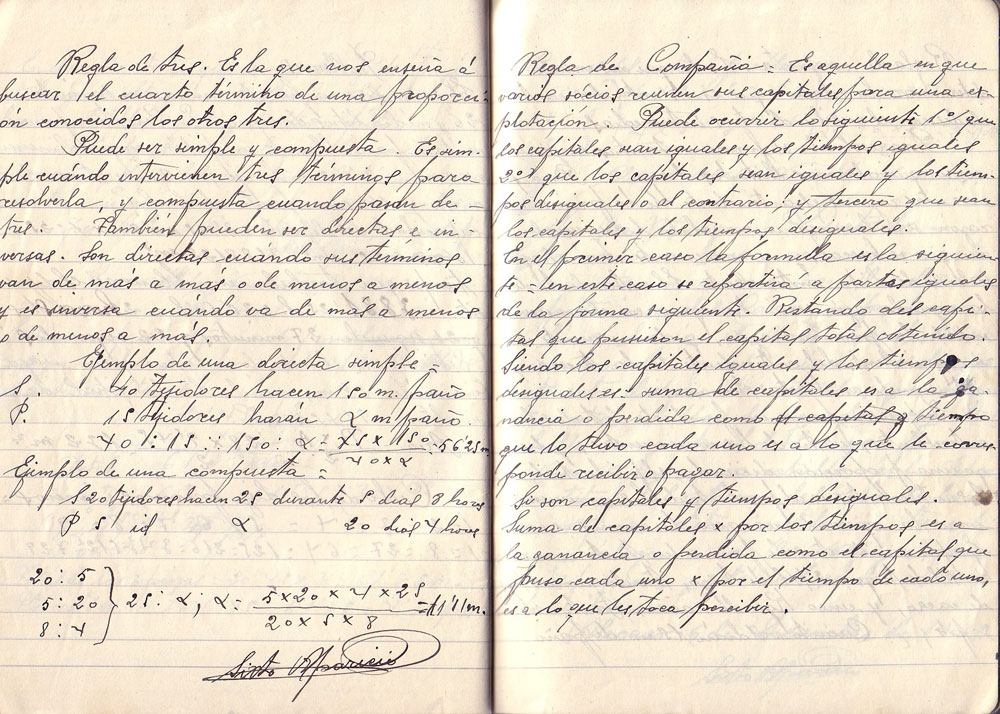 Regla de tres. Es la que nos enseña á
buscar el cuarto término de una proporci-
on conocidos los otros tres.
Puede ser simple y compuesta. Es sim-
ple cuándo intervienen tres términos para
resolverla, y compuesta cuando pasan de-
tres. También pueden ser directas e in-
versas. Son directas cuándo sus términos
van de más a más o de menos a menos
y es inversa cuándo va de más a menos
o de menos a más.
Ejemplo de una directa simple =
S. 40 tejidores hacen 150 m. paño
P. 15 tejidores harán α m paño
40 : 15 :: 150 : α = 15 x 150 / 40 x α = 5625 m
Ejemplo de una compuesta =
S 20 tejidores hacen 25 durante 5 dias 8 hors
P 5 id α 20 dias 4 hores
20 : 5
5 : 20 } 25 : α ; α = 5 x 20 x 4 x 25 / 20 x 5 x 8 =
8 : 4
Sixto Aparicio
Regla de Compañia = Es aquella en que
varios socios reunen sus capitales para una es-
plotación. Puede ocurrir lo siguiente 1º que
los capitales sean iguales y los tiempos iguales
2º que los capitales sean iguales y los tiem-
pos desiguales o al contrario; y tercero que sean
los capitales y los tiempos desiguales.
En el primer caso la formula es la siguien-
te = en este caso se repartirá a partes iguales
de la forma siguiente. Restando del capi-
tal que pusieron el capital total obtenido.
Siendo los capitales iguales y los tiempos
desiguales es: suma de capitales es a la ga-
nancia o perdida como el capital y tiempo
que lo tuvo cada uno es a lo que le corres
ponde recibir o pagar.
Si son capitales y tiempos desiguales.
Suma de capitales x por los tiempos es a
la ganancia o perdida como el capital que
puso cada uno x por el tiempo de cada uno,
es a lo que les toca percibir.